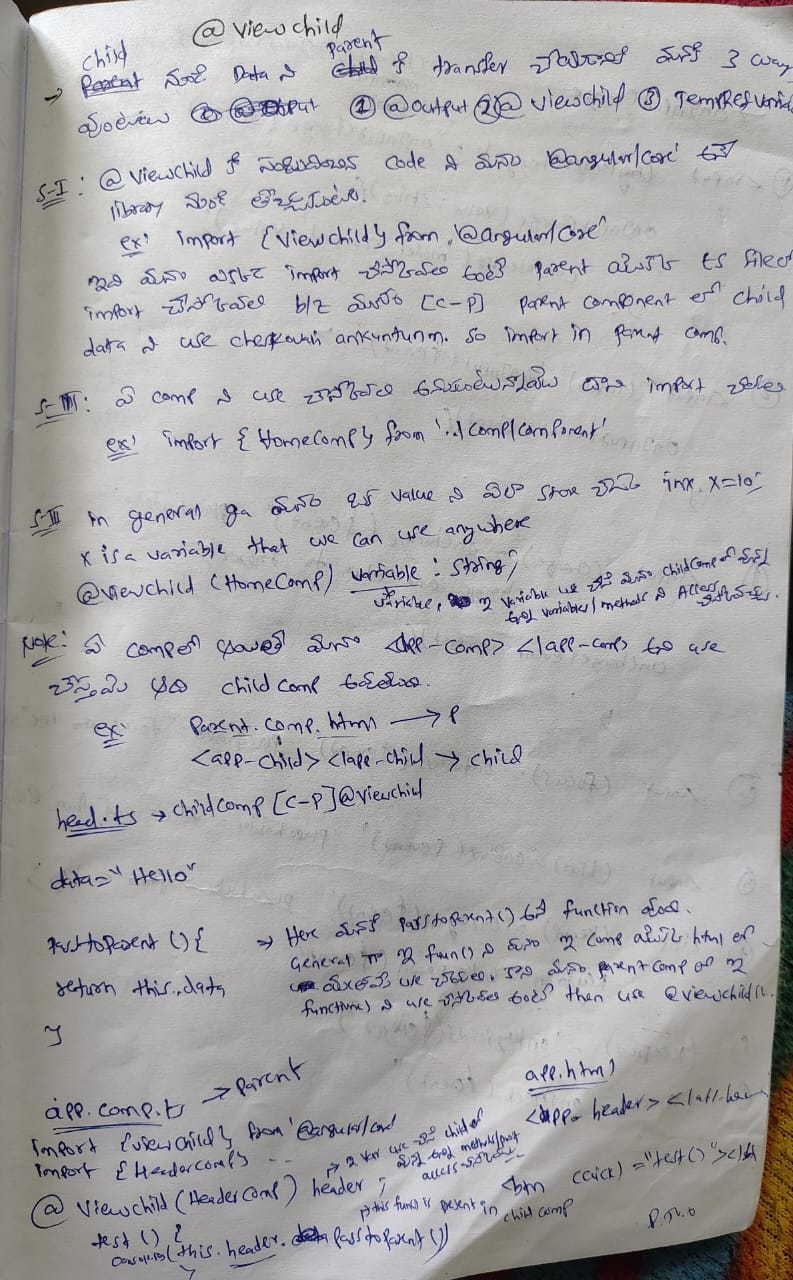 @viewchild
child Parent
→ నుంచి Data ని కి transfer చేయడానికి మనకి 3 way
వుంటాయి ① @output ② @viewchild ③ TempRefvariab
S-I: @viewchild కి సంబంధించిన code ని మనం '@angular/core' అనే
library నుంచి తెచ్చుకుంటాం.
ex: import {viewchild} from '@angular/core'
ఇది మనం ఎక్కడ import చేసుకోవాలి అంటే parent యొక్క ts fileలో
import చేసుకోవాలి b/z మనం [C-P] parent component లో child
data ని use cheskovali ankuntunm. so import in parent comp.
S-II: ఏ comp ని use చేసుకోవాలి అనుకుంటున్నామో దాని import చేయాలి
ex: import {HomeComp} from '../comp/component'
S-III in general ga మనం ఒక value ని ఎలా store చేస్తాం inx, x=10;
x is a variable that we can use anywhere
@viewchild (HomeComp) variable : string;
variable, ఇ variable use చేసి మనం childcomp లో వున్న
అన్ని variables/methods ని Access చేసుకోవచ్చు.
Note: ఏ comp లో అయితే మనం <app-comp> </app-comp> అని use
చేస్తామో అది child comp అవుతుంది.
ex: Parent.comp.html → P
<app-child> </app-child → child
head.ts → childcomp [C-P] @viewchild
data="Hello"
PasstoParent () { → Here మనకి PasstoParent() అనే function వుంది.
return this.data general గా ఇ func() ని మనం ఇ comp యొక్క html లో
మాత్రమే use చేయాలి. కాని మనం parent comp లో ఇ
functions ని use చేసుకోవాలి అంటే then use @viewchild().
}
app.comp.ts → parent app.html
import {viewchild} from '@angular/core <app-header> </app.hea
import {Headercomp} --
@viewchild (HeaderComp) header; → ఇ var use చేసి child లో
వున్న అన్ని methods/prop
access చేయొచ్చు
<btn (click) ="test()"></bt
test () { → this func is present in child comp
console.log(this.header.PasstoParent())
}
P.T.O